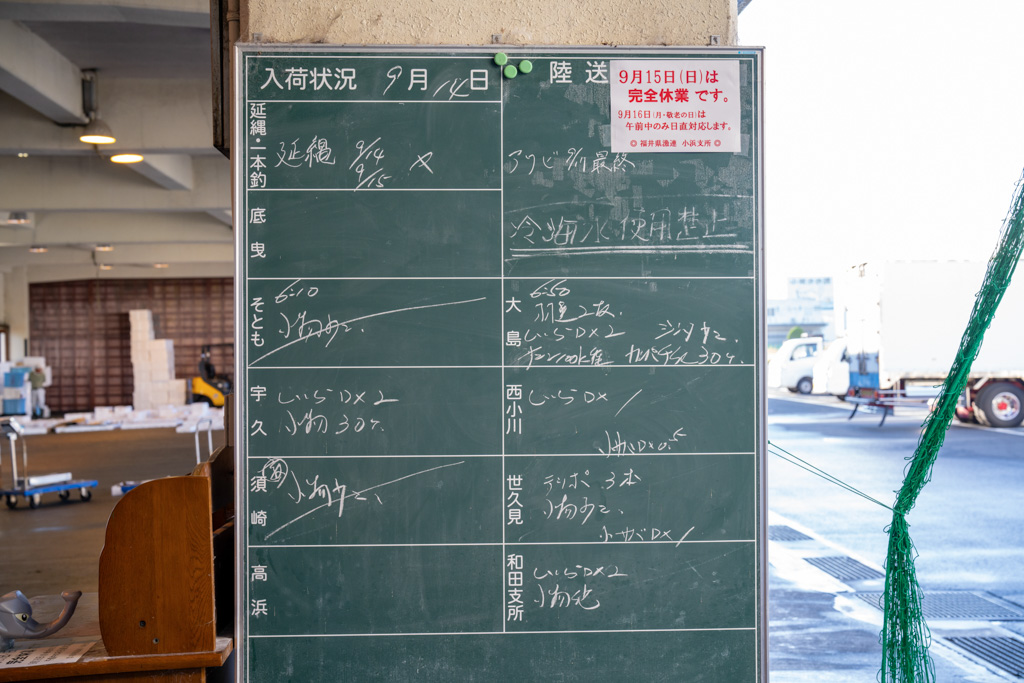 入荷状況 9月14日
延縄・一本釣
延縄 9/14 9/15 ×
底曳
そとも
6-10
小物少々.
宇久
しいらDX2
小物30ケ.
須崎
小物少々、
高浜
陸送
9月15日(日)は
完全休業です。
9月16日(月・敬老の日)は
午前中のみ日直対応します。
◎ 福井県漁連 小浜支所 ◎
アワビ 9/11最終
冷海水使用禁止
大島
6-50
2枚.
しいらDX2
30ケ.
西小川
しいらDX 1
DX0.5
世久見
3本
小物少々、
DX 1
和田支所
しいらDX2
小物